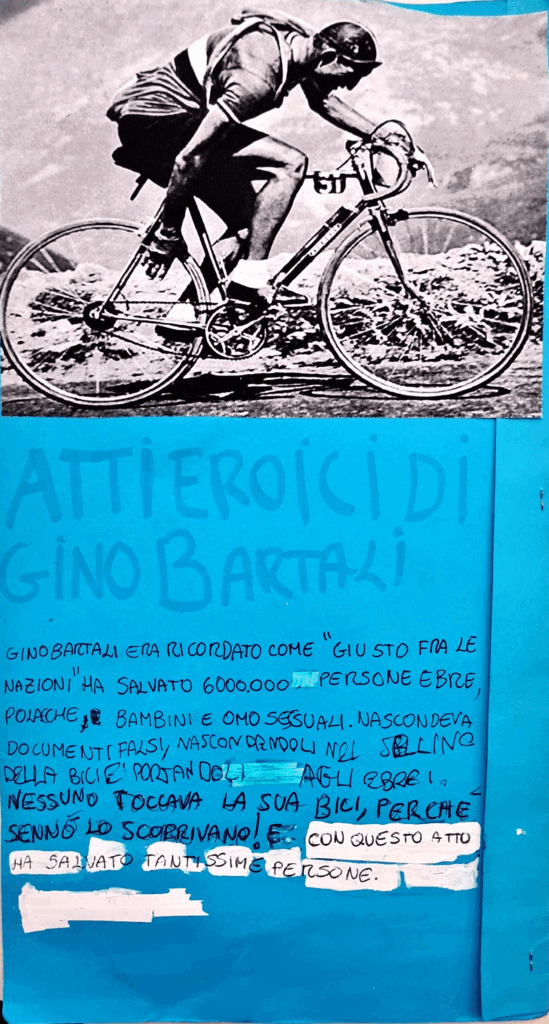 51
ATTI EROICI DI
GINO BARTALI
GINO BARTALI ERA RICORDATO COME "GIUSTO FRA LE
NAZIONI" HA SALVATO 6000.000 PERSONE EBRE,
POLACHE, E BAMBINI E OMOSESSUALI. NASCONDEVA
DOCUMENTI FALSI, NASCONDENDOLI NEL SELLINO
DELLA BICI E PORTANDOLI AGLI EBREI.
NESSUNO TOCCAVA LA SUA BICI, PERCHÉ
SENNÒ LO SCOPRIVANO! E CON QUESTO ATTO
HA SALVATO TANTISSIME PERSONE.